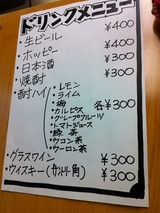 ドリンクメニュー
・生ビール ¥400
・ホッピー ¥400
・日本酒 ¥300
・焼酎 ¥300
・酎ハイ
・レモン
・ライム
・梅 各¥300
・カルピス
・グレープフルーツ
・トマトジュース
・緑茶
・ウコン茶
・ウーロン茶
・グラスワイン ¥300
・ウイスキー(カントリー角) ¥300